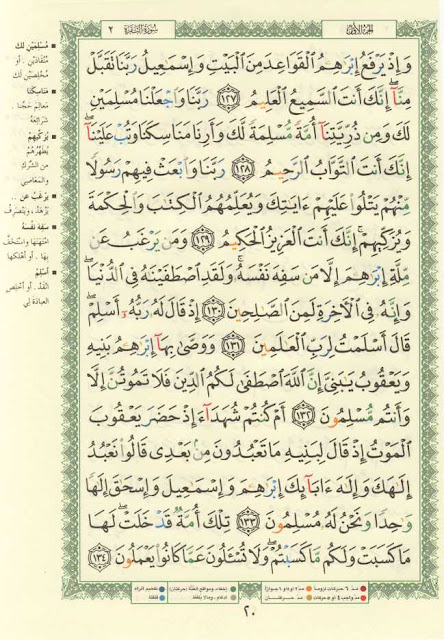 الجزء الأول
سورة البقرة ٢
وَإِذْ يَرْفَعُ إِبْرَٰهِـۧمُ ٱلْقَوَاعِدَ مِنَ ٱلْبَيْتِ وَإِسْمَٰعِيلُ رَبَّنَا تَقَبَّلْ
مِنَّآ إِنَّكَ أَنتَ ٱلسَّمِيعُ ٱلْعَلِيمُ ١٢٧ رَبَّنَا وَٱجْعَلْنَا مُسْلِمَيْنِ
لَكَ وَمِن ذُرِّيَّتِنَآ أُمَّةً مُّسْلِمَةً لَّكَ وَأَرِنَا مَنَاسِكَنَا وَتُبْ عَلَيْنَآ ۖ
إِنَّكَ أَنتَ ٱلتَّوَّابُ ٱلرَّحِيمُ ١٢٨ رَبَّنَا وَٱبْعَثْ فِيهِمْ رَسُولًا
مِّنْهُمْ يَتْلُوا۟ عَلَيْهِمْ ءَايَٰتِكَ وَيُعَلِّمُهُمُ ٱلْكِتَٰبَ وَٱلْحِكْمَةَ
وَيُزَكِّيهِمْ ۚ إِنَّكَ أَنتَ ٱلْعَزِيزُ ٱلْحَكِيمُ ١٢٩ وَمَن يَرْغَبُ عَن
مِّلَّةِ إِبْرَٰهِـۧمَ إِلَّا مَن سَفِهَ نَفْسَهُۥ ۚ وَلَقَدِ ٱصْطَفَيْنَٰهُ فِى ٱلدُّنْيَا ۖ
وَإِنَّهُۥ فِى ٱلْءَاخِرَةِ لَمِنَ ٱلصَّٰلِحِينَ ١٣٠ إِذْ قَالَ لَهُۥ رَبُّهُۥٓ أَسْلِمْ ۖ
قَالَ أَسْلَمْتُ لِرَبِّ ٱلْعَٰلَمِينَ ١٣١ وَوَصَّىٰ بِهَآ إِبْرَٰهِـۧمُ بَنِيهِ
وَيَعْقُوبُ يَٰبَنِىَّ إِنَّ ٱللَّهَ ٱصْطَفَىٰ لَكُمُ ٱلدِّينَ فَلَا تَمُوتُنَّ إِلَّا
وَأَنتُم مُّسْلِمُونَ ١٣٢ أَمْ كُنتُمْ شُهَدَآءَ إِذْ حَضَرَ يَعْقُوبَ
ٱلْمَوْتُ إِذْ قَالَ لِبَنِيهِ مَا تَعْبُدُونَ مِنۢ بَعْدِى قَالُوا۟ نَعْبُدُ
إِلَٰهَكَ وَإِلَٰهَ ءَابَآئِكَ إِبْرَٰهِـۧمَ وَإِسْمَٰعِيلَ وَإِسْحَٰقَ إِلَٰهًا
وَٰحِدًا وَنَحْنُ لَهُۥ مُسْلِمُونَ ١٣٣ تِلْكَ أُمَّةٌ قَدْ خَلَتْ ۖ لَهَا
مَا كَسَبَتْ وَلَكُم مَّا كَسَبْتُمْ ۖ وَلَا تُسْـَٔلُونَ عَمَّا كَانُوا۟ يَعْمَلُونَ ١٣٤
مُسْلِمَيْنِ لك
مُنْقَادَيْنِ . أو
مُخْلِصَيْنِ لك
مَنَاسِكَنَا
مَعَالِمَ حَجِّنَا .
شرائعه
يُزَكّيهم
يُطَهِّرُهُمْ
من الشرك
والمعاصي
يرغب عن ..
يَزْهَدُ ، ويَنْصَرِفُ
سَفِهَ نَفْسَهُ
امْتَهَنَهَا واسْتَخَفَّ
بِهَا ، أو أَهْلَكَهَا
أسْلِمْ
انْقَدْ . أو أخْلِصِ
العبادة لي
مدّ ٦ حركات لزوماً
مدّ ٢ أو ٤ أو ٦ جوازاً
مدّ واجب ٤ أو ٥ حركات
مدّ حركتان
إخفاء، ومواقع الغنّة (حركتان)
إدغام ، وما لا يُلفظ
تفخيم الراء
قلقلة
٢٠